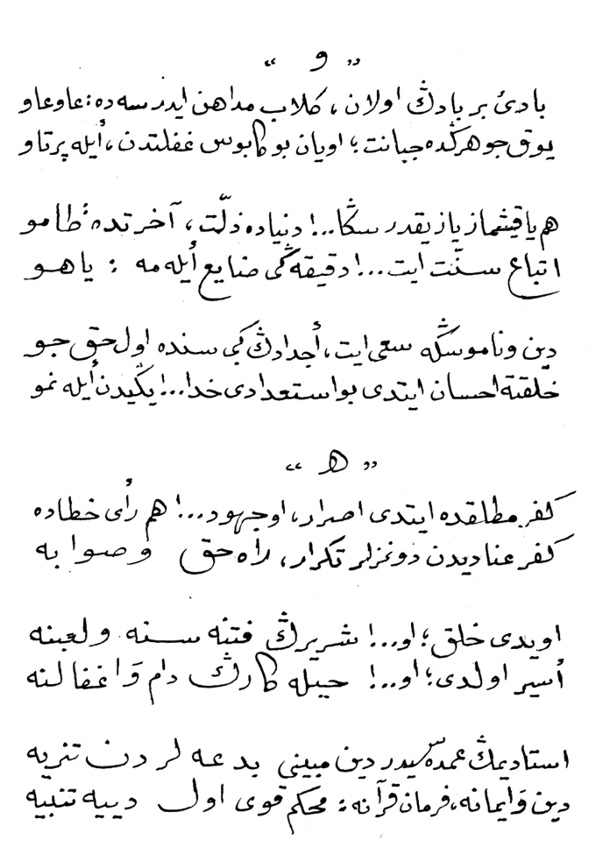 „ و “
بادئ بربادڭ اولان ، كلاب مداهن ايدرسه ده : عاوعاو
يوق جوهرڭده جبانت ؛ اويان بو كابوس غفلتدن ، أيله پرتاو
هم ياقيشماز يازيقدر سڭا ..! دنياده ذلّت ، آخرتده طامو
اتباع سنّت ايت ...! دقيقه ڭى ضايع أيله مه : ياهو
دين وناموسڭه سعى ايت ، أجدادڭ كبى سنده اول حق جو
خلقته احسان ايتدى بو استعدادى خدا ...! يڭيدن أيله نمو
„ هـ “
كفر مطلقده ايتدى اصرار ، اوجهود ...! هم رأى خطاده
كفر عناديدن دونمزلر تكرار ، راه حق وصوابه
اويدى خلق ؛ او ...! شريرڭ فتنه سنه ولعبنه
أسير اولدى ؛ او ...! حيله كارڭ دام وَاغفالنه
استاديمڭ عمده سيدر دين مبينى بدعه لردن تنزيه
دين وَايمانه ، فرمان قرآنه : محكم قوى اول دييه تنبيه